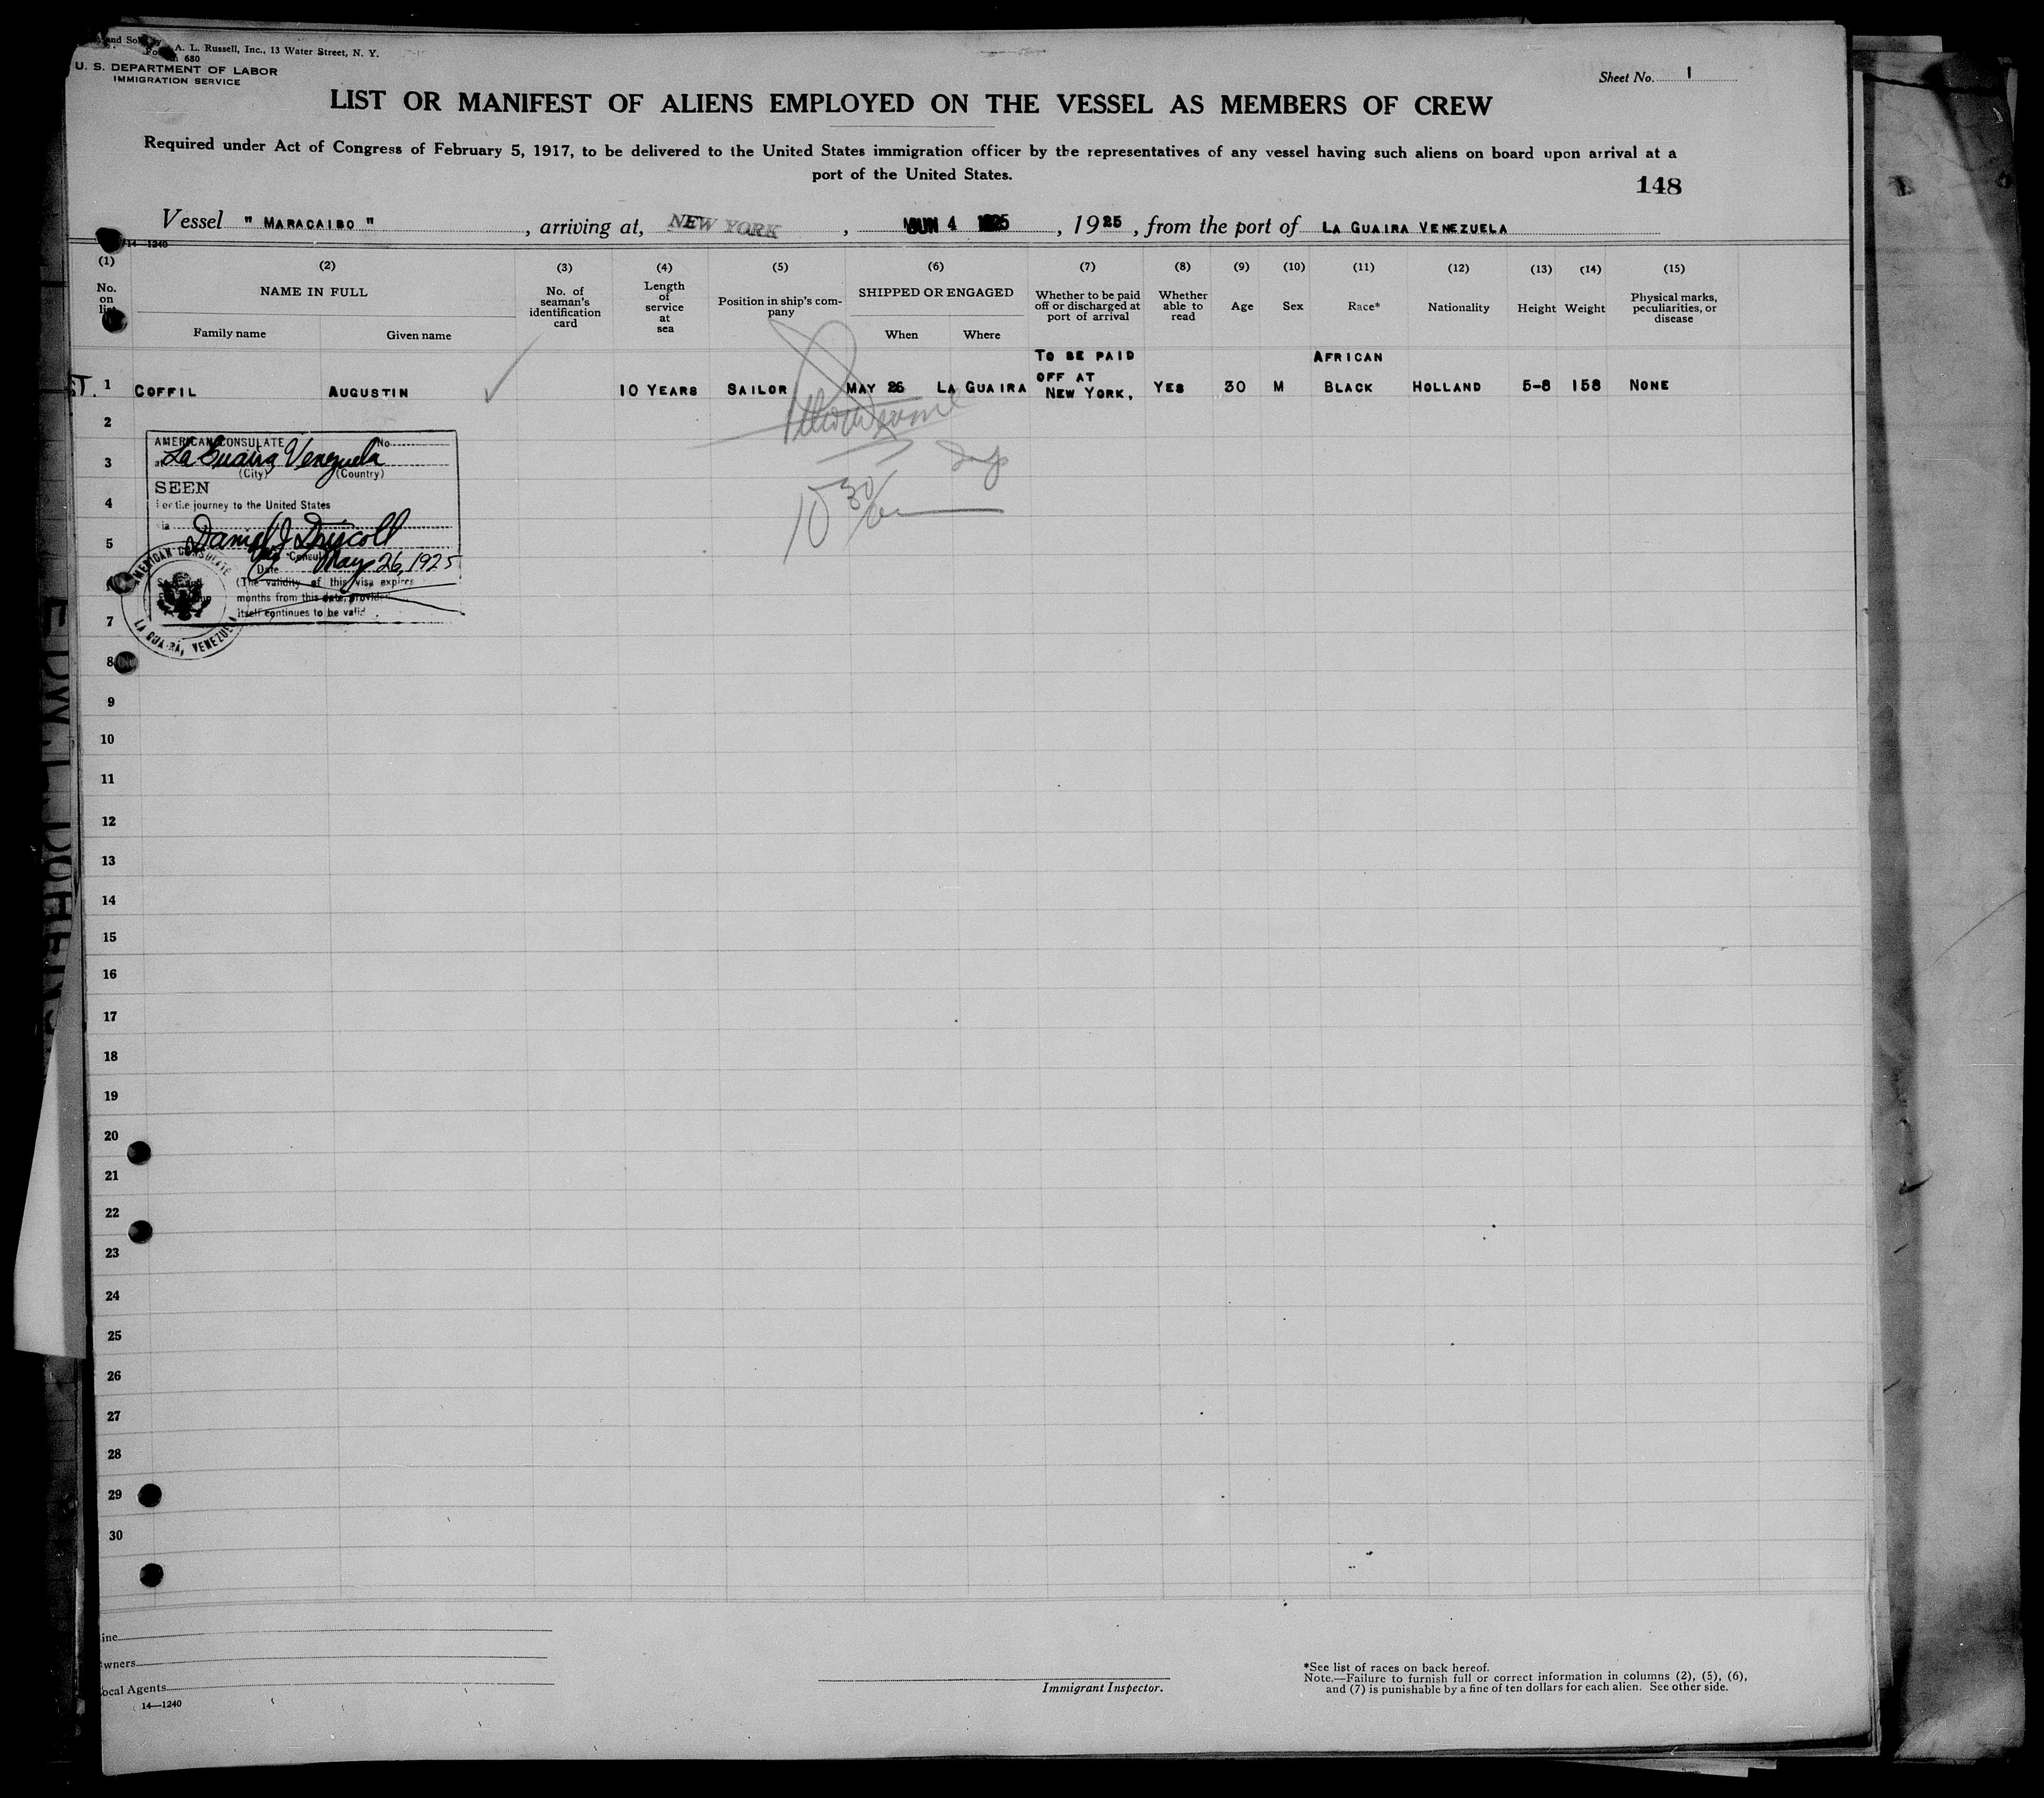 and Sold by A. L. Russell, Inc., 13 Water Street, N. Y.
Form 680
U. S. DEPARTMENT OF LABOR
IMMIGRATION SERVICE
Sheet No. 1
LIST OR MANIFEST OF ALIENS EMPLOYED ON THE VESSEL AS MEMBERS OF CREW
Required under Act of Congress of February 5, 1917, to be delivered to the United States immigration officer by the representatives of any vessel having such aliens on board upon arrival at a
port of the United States.
148
Vessel " MARACAIBO " , arriving at, NEW YORK , JUN 4 1925 , 1925 , from the port of LA GUAIRA VENEZUELA
14—1240
(1) (2) (3) (4) (5) (6) (7) (8) (9) (10) (11) (12) (13) (14) (15)
No. on list
NAME IN FULL
Family name Given name
No. of seaman's identification card
Length of service at sea
Position in ship's company
SHIPPED OR ENGAGED
When Where
Whether to be paid off or discharged at port of arrival
Whether able to read
Age
Sex
Race*
Nationality
Height
Weight
Physical marks, peculiarities, or disease
TO BE PAID AFRICAN
OFF AT
1 COFFIL AUGUSTIN 10 YEARS SAILOR MAY 26 LA GUAIRA NEW YORK, YES 30 M BLACK HOLLAND 5-8 158 NONE
2
3
4
5
7
8
9
10
11
12
13
14
15
16
17
18
19
20
21
22
23
24
25
26
27
28
29
30
AMERICAN CONSULATE No.
at La Guaira, Venezuela
(City) (Country)
SEEN
For the journey to the United States
via
Daniel J Driscoll
Vice Consul
Date May 26, 1925
(The validity of this visa expires
months from this date, provided
itself continues to be valid.
AMERICAN CONSULATE
LA GUAIRA, VENEZUELA
10 30
ine
wners
ocal Agents
14—1240
Immigrant Inspector.
*See list of races on back hereof.
Note.—Failure to furnish full or correct information in columns (2), (5), (6),
and (7) is punishable by a fine of ten dollars for each alien. See other side.